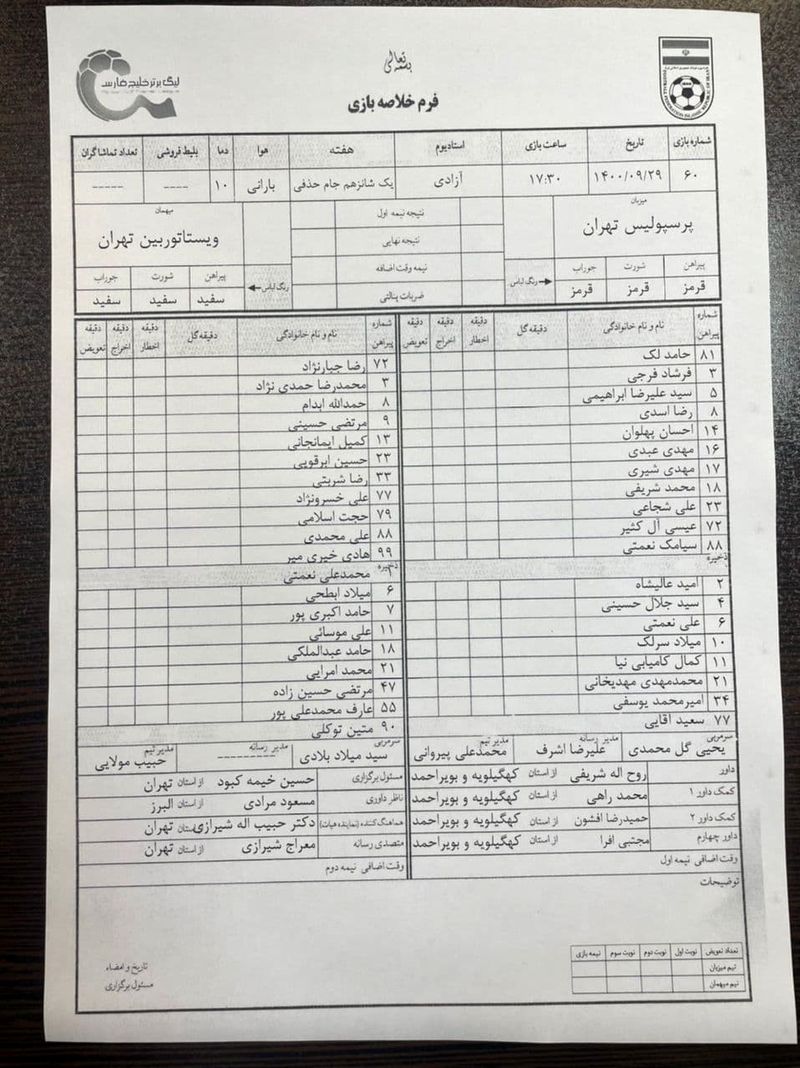 بسمه تعالی
لیگ برتر خلیج فارس
فرم خلاصه بازی
شماره بازی تاریخ ساعت بازی استادیوم هفته هوا دما بلیط فروشی تعداد تماشاگران
۶۰ ۱۴۰۰/۰۹/۲۹ ۱۷:۳۰ آزادی یک شانزدهم جام حذفی بارانی ۱۰ ---- -----
میزبان
پرسپولیس تهران
نتیجه نیمه اول
نتیجه نهایی
نیمه وقت اضافه
ضربات پنالتی
میهمان
ویستاتوربین تهران
پیراهن شورت جوراب رنگ لباس
قرمز قرمز قرمز
رنگ لباس پیراهن شورت جوراب
سفید سفید سفید
شماره پیراهن نام و نام خانوادگی دقیقه گل دقیقه اخطار دقیقه اخراج دقیقه تعویض
۸۱ حامد لک
۳ فرشاد فرجی
۵ سید علیرضا ابراهیمی
۸ رضا اسدی
۱۴ احسان پهلوان
۱۶ مهدی عبدی
۱۷ مهدی شیری
۱۸ محمد شریفی
۲۳ علی شجاعی
۷۲ عیسی آل کثیر
۸۸ سیامک نعمتی
ذخیره
۲ امید عالیشاه
۴ سید جلال حسینی
۶ علی نعمتی
۱۰ میلاد سرلک
۱۱ کمال کامیابی نیا
۲۱ محمدمهدی مهدیخانی
۳۴ امیرمحمد یوسفی
۷۷ سعید آقایی
سرمربی یحیی گل محمدی مدیر رسانه علیرضا اشرف مدیر تیم محمدعلی پیروانی
شماره پیراهن نام و نام خانوادگی دقیقه گل دقیقه اخطار دقیقه اخراج دقیقه تعویض
۷۲ رضا جبارنژاد
۳ محمدرضا حمدی نژاد
۸ حمدالله ابدام
۹ مرتضی حسینی
۱۳ کمیل ایمانجانی
۲۳ حسین ابرقویی
۳۳ رضا شربتی
۷۷ علی خسرونژاد
۷۹ حجت اسلامی
۸۸ علی محمدی
۹۹ هادی خیری میر
ذخیره
۱ محمدعلی نعمتی
۶ میلاد ابطحی
۷ حامد اکبری پور
۱۱ علی موسائی
۱۸ حامد عبدالملکی
۲۱ محمد امرایی
۴۷ مرتضی حسین زاده
۵۵ عارف محمدعلی پور
۹۰ متین توکلی
سرمربی سید میلاد بلادی مدیر رسانه --------- مدیر تیم حبیب مولایی
داور روح اله شریفی از استان کهگیلویه و بویراحمد
کمک داور ۱ محمد راهی از استان کهگیلویه و بویراحمد
کمک داور ۲ حمیدرضا افشون از استان کهگیلویه و بویراحمد
داور چهارم مجتبی افرا از استان کهگیلویه و بویراحمد
وقت اضافی نیمه اول
مسئول برگزاری حسین خیمه کبود از استان تهران
ناظر داوری مسعود مرادی از استان البرز
هماهنگ کننده (نماینده هیات) دکتر حبیب اله شیرازی از استان تهران
متصدی رسانه معراج شیرازی از استان تهران
وقت اضافی نیمه دوم
توضیحات
تعداد تعویض نوبت اول نوبت دوم نوبت سوم نیمه بازی
تیم میزبان
تیم میهمان
تاریخ و امضاء
مسئول برگزاری